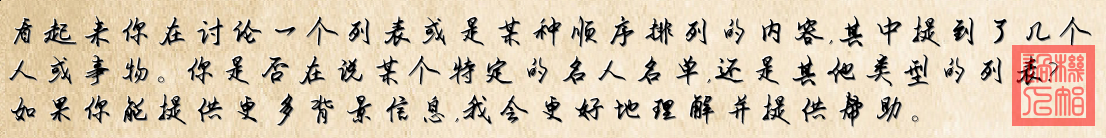 看起来你在讨论一个列表或是某种顺序排列的内容,其中提到了几个
人或事物。你是否在说某个特定的名人名单,还是其他类型的列表?
如果你能提供更多背景信息,我会更好地理解并提供帮助。